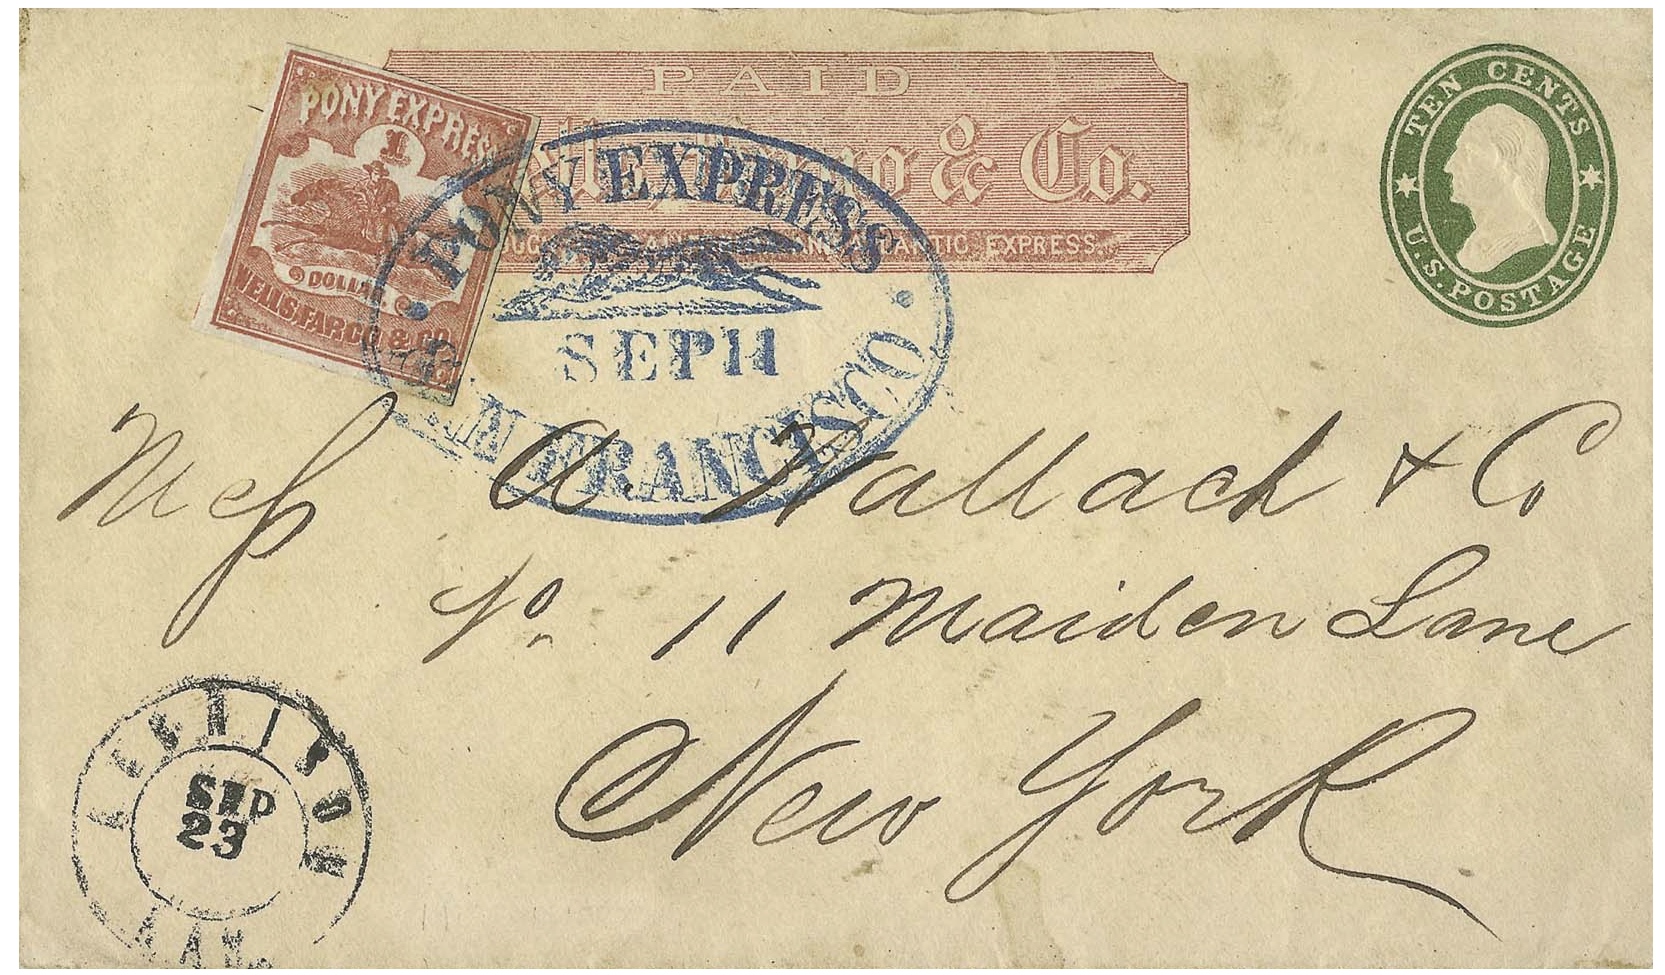 PONY EXPRESS
1
DOLLAR
WELLS, FARGO & CO.
PAID
& Co.
ATLANTIC EXPRESS.
TEN CENTS
U.S. POSTAGE
PONY EXPRESS
SEP 11
SAN FRANCISCO
Mess A. Wallach & Co
No. 11 Maiden Lane
New York
ATCHISON
SEP
23
KAN.